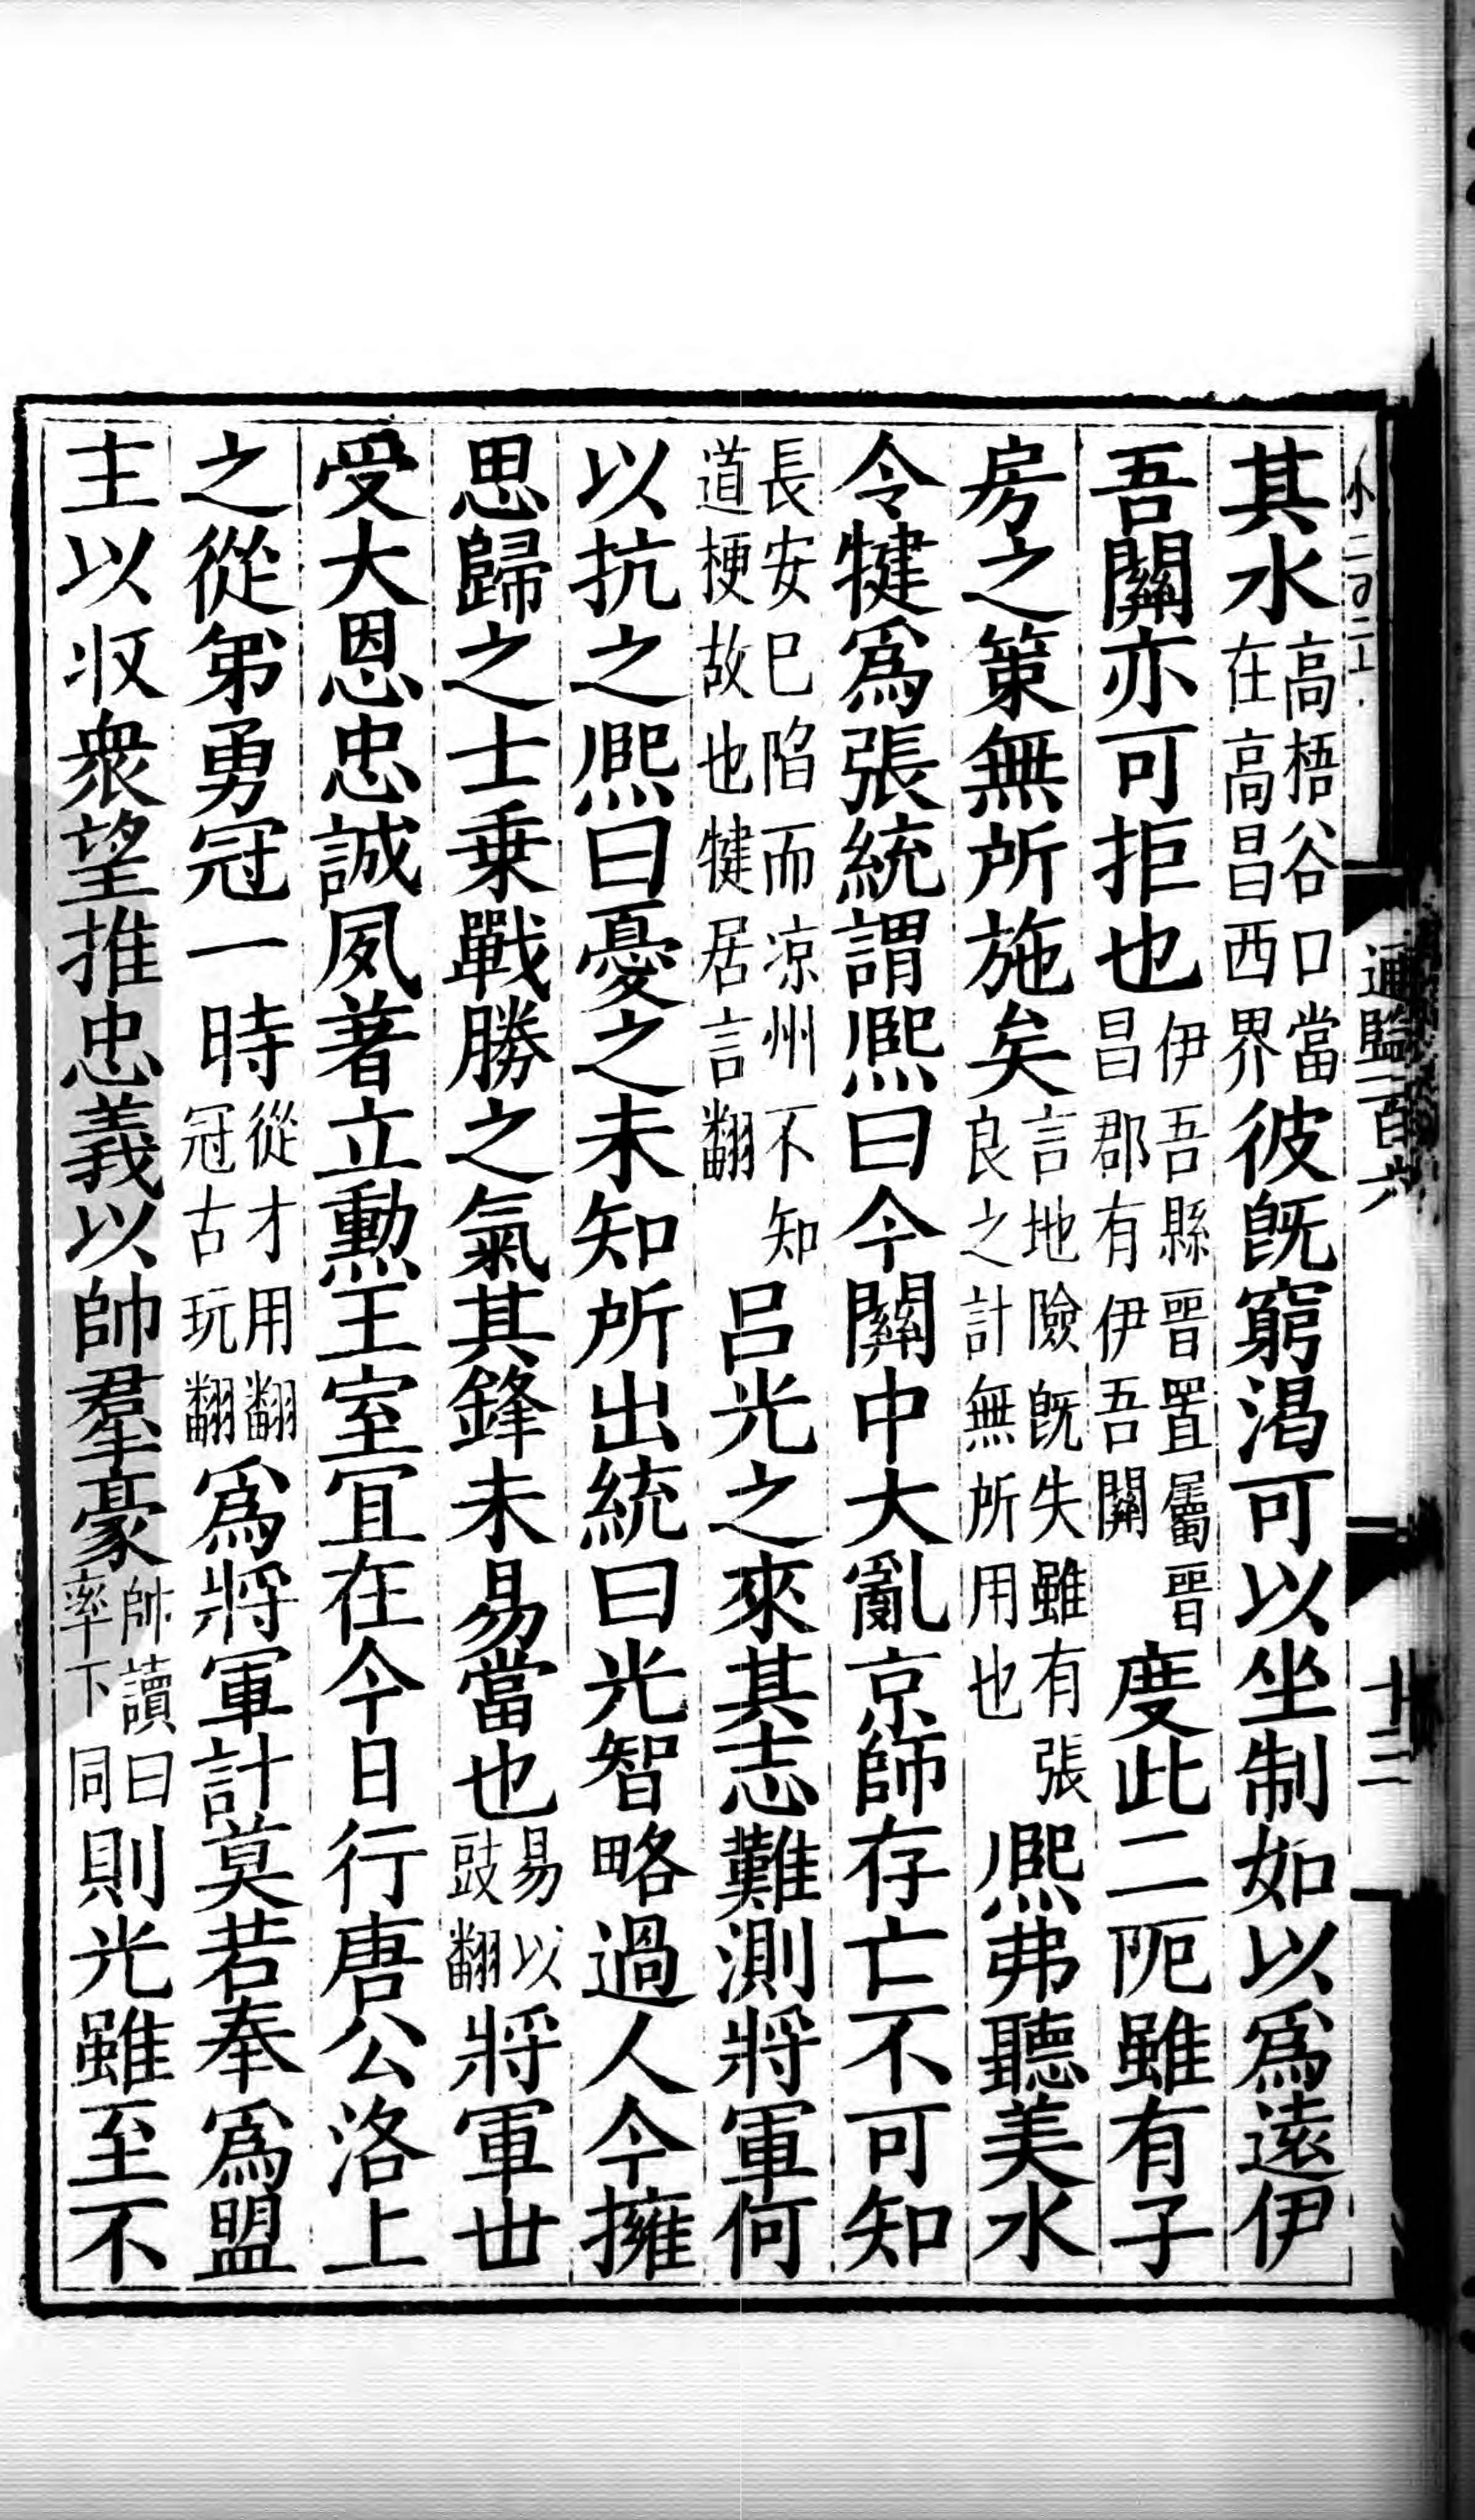 通鑑一百六
十二
其水高梧谷口當在高昌西界彼旣窮渴可以坐制如以爲遠伊
吾關亦可拒也伊吾縣晉置屬晉昌郡有伊吾關度此二阨雖有子
房之策無所施矣言地險旣失雖有張良之計無所用也熈弗聽美水
令犍爲張統謂熈曰今關中大亂京師存亡不可知
長安已陷而凉州不知道梗故也犍居言翻呂光之來其志難測將軍何
以抗之熈曰憂之未知所出統曰光智略過人今擁
思歸之士乗戰勝之氣其鋒未易當也易以豉翻將軍丗
受大恩忠誠夙著立勲王室宜在今日行唐公洛上
之從弟勇冠一時從才用翻冠古玩翻爲將軍計莫若奉爲盟
主以収衆望推忠義以帥羣豪帥讀曰率下同則光雖至不